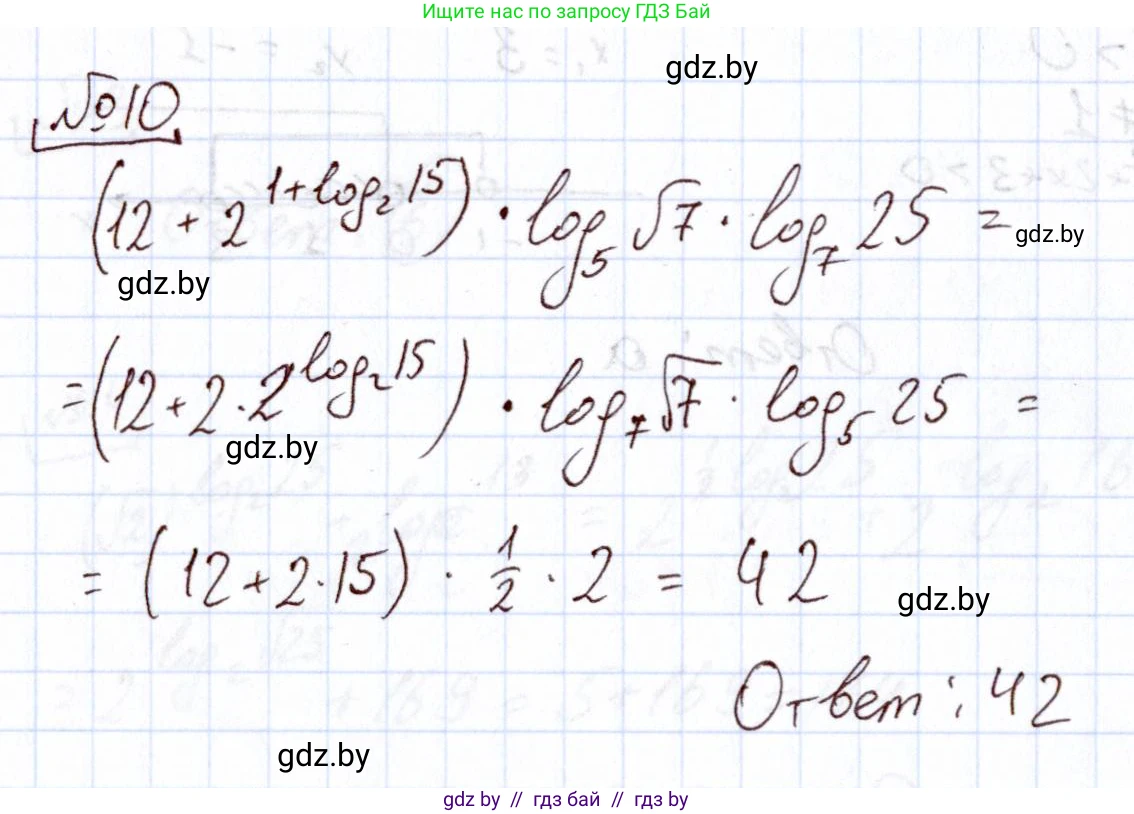 Ищите нас по запросу ГДЗ Бай
gdz.by
№10
(12 + 2^(1+log₂15)) · log₅√7 · log₇25 =
gdz.by
gdz.by
=(12 + 2·2^(log₂15)) · log₇√7 · log₅25 =
gdz.by
= (12+2·15) · 1/2 · 2 = 42
gdz.by
Ответ: 42
gdz.by
gdz by // гдз бай // гдз by